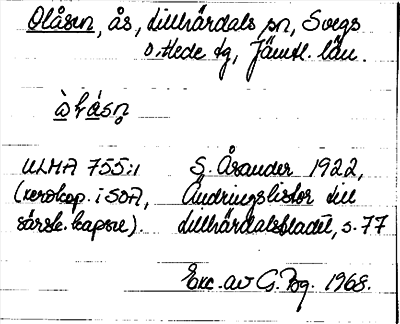 Olåsen, ås, Lillhärdals sn, Svegs
o. Hede tg, Jämtl. län.
ULMA 755:1 S. Åsander 1922,
(verskap. i SOA, Ändringslistor till
särsk. kapsel). Lillhärdalsbladet, s. 77
Exc. av G. 1968.